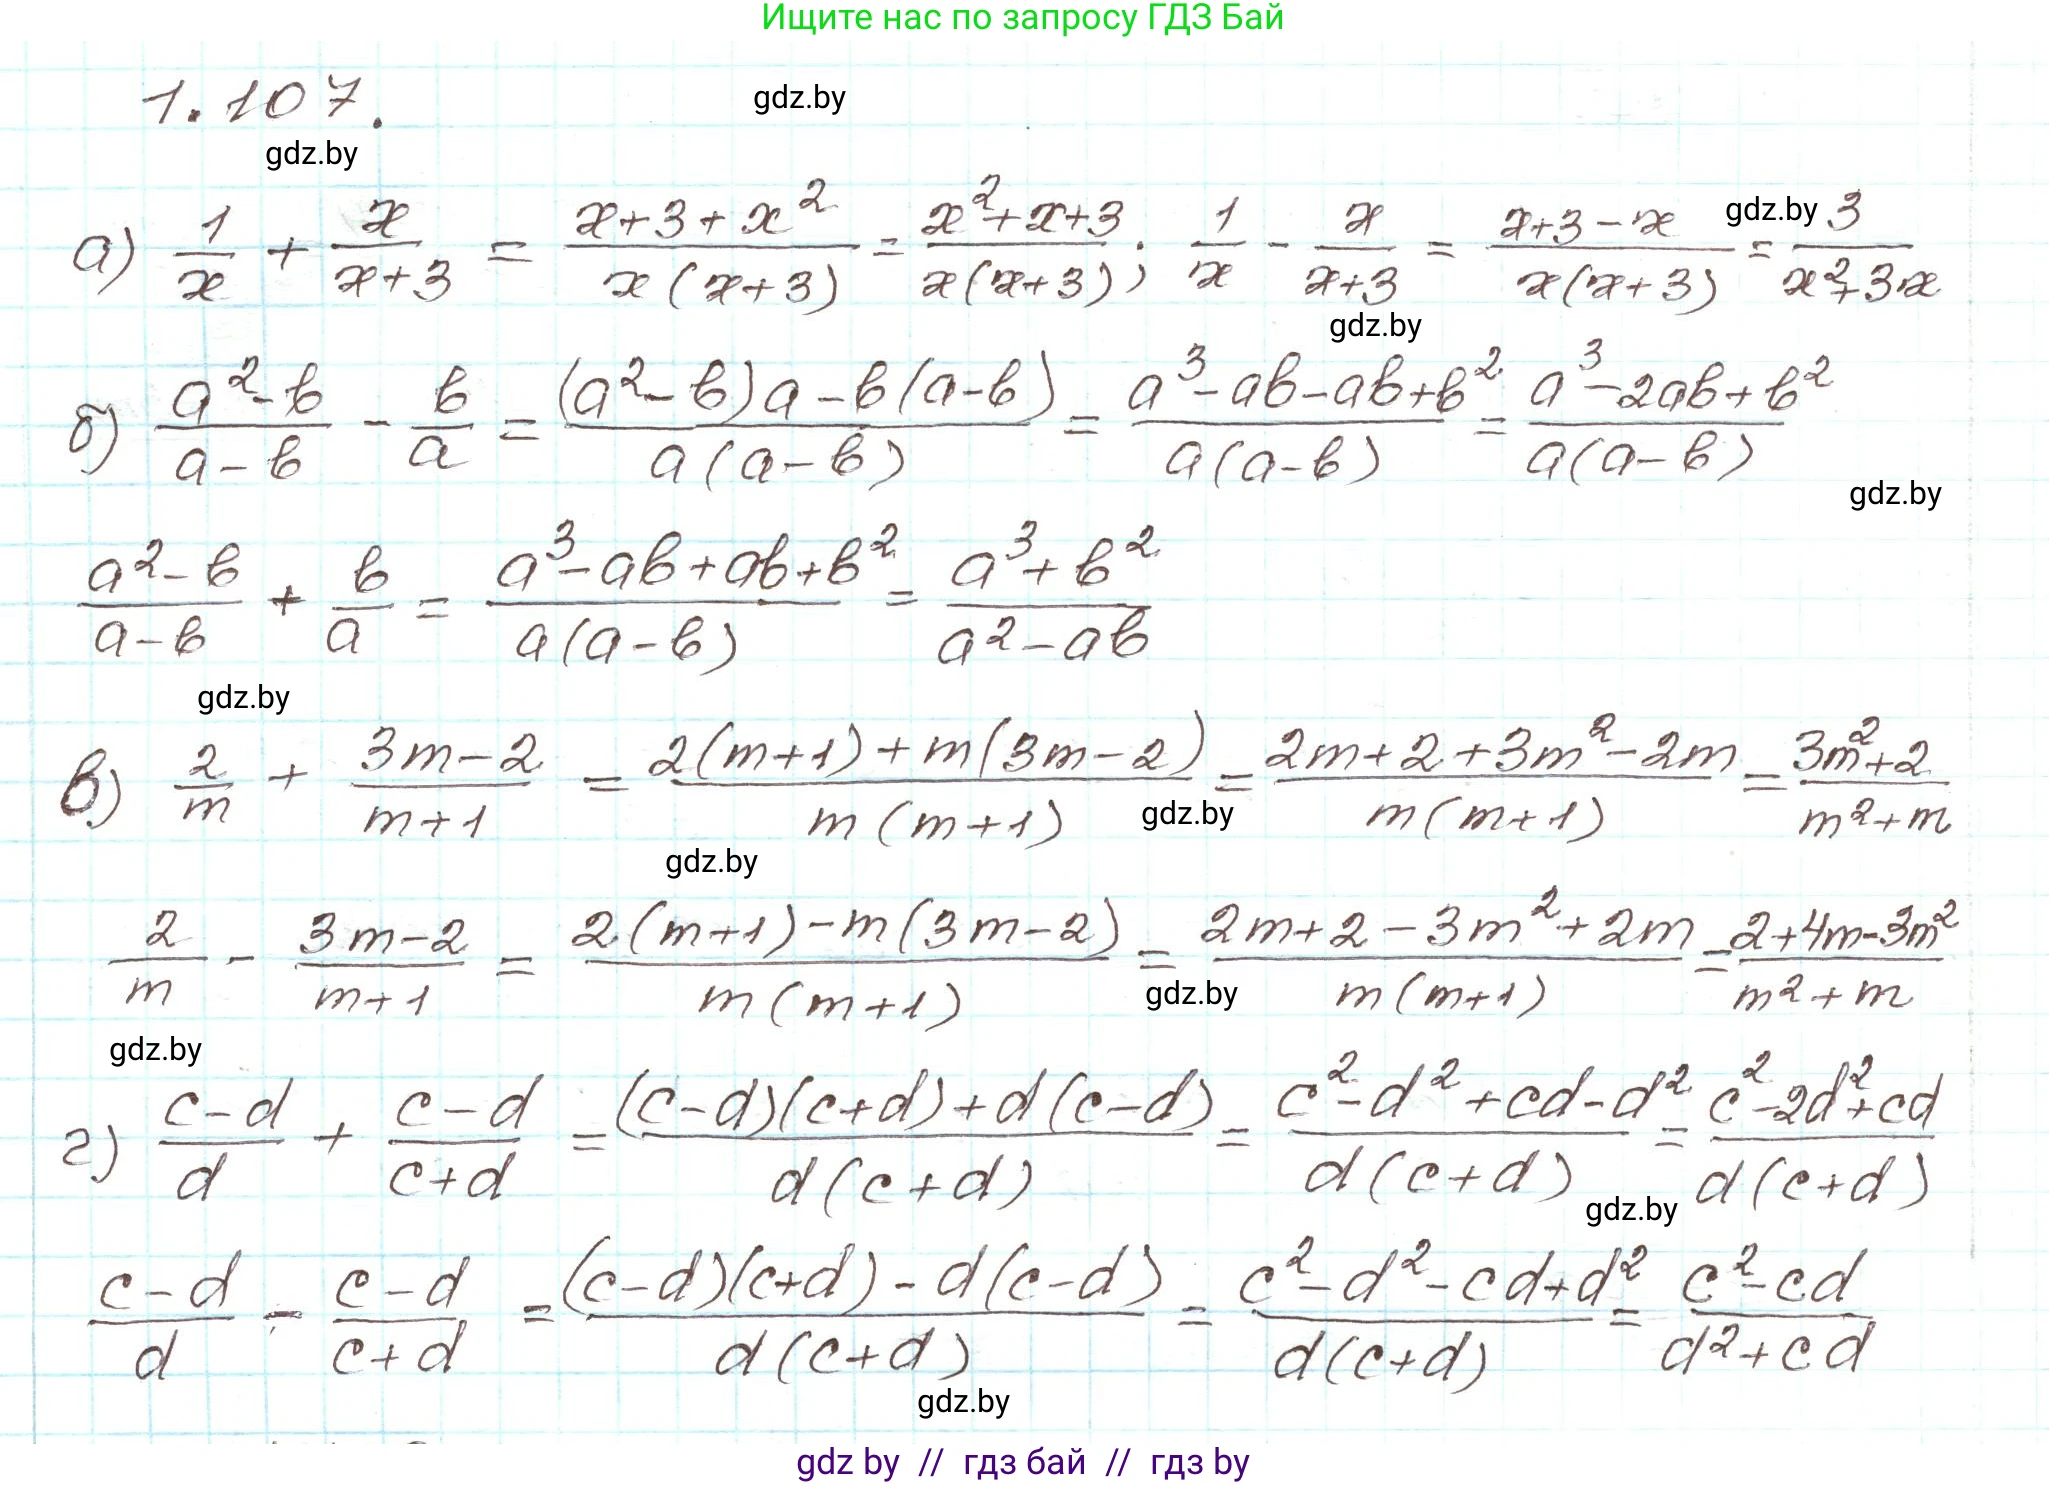 Ищите нас по запросу ГДЗ Бай
1.107.
gdz.by
gdz.by
а) 1/x + x/(x+3) = (x+3+x²)/(x(x+3)) = (x²+x+3)/(x(x+3)); 1/x - x/(x+3) = (x+3-x)/(x(x+3)) = 3/(x²+3x)
gdz.by
gdz.by
б) (a²-b)/(a-b) - b/a = ((a²-b)a-b(a-b))/(a(a-b)) = (a³-ab-ab+b²)/(a(a-b)) = (a³-2ab+b²)/(a(a-b))
gdz.by
(a²-b)/(a-b) + b/a = (a³-ab+ab+b²)/(a(a-b)) = (a³+b²)/(a²-ab)
gdz.by
в) 2/m + (3m-2)/(m+1) = (2(m+1)+m(3m-2))/(m(m+1)) = (2m+2+3m²-2m)/(m(m+1)) = (3m²+2)/(m²+m)
gdz.by
gdz.by
2/m - (3m-2)/(m+1) = (2(m+1)-m(3m-2))/(m(m+1)) = (2m+2-3m²+2m)/(m(m+1)) = (2+4m-3m²)/(m²+m)
gdz.by
gdz.by
г) (c-d)/d + (c-d)/(c+d) = ((c-d)(c+d)+d(c-d))/(d(c+d)) = (c²-d²+cd-d²)/(d(c+d)) = (c²-2d²+cd)/(d(c+d))
gdz.by
(c-d)/d - (c-d)/(c+d) = ((c-d)(c+d)-d(c-d))/(d(c+d)) = (c²-d²-cd+d²)/(d(c+d)) = (c²-cd)/(d²+cd)
gdz.by
gdz by // гдз бай // гдз by